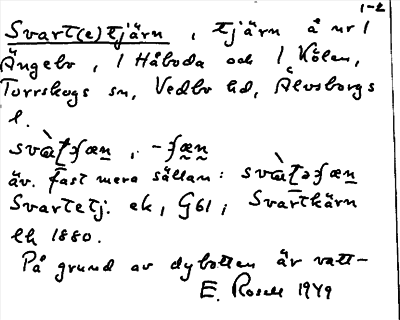 1-2
Svart(e)tjärn, tjärn å nr 1
Ängebo, 1 Håboda och 1 Kölen,
Torrskogs sn, Vedbo hd, Älvsborgs
l.
äv. fast mera sällan:
Svartetj. ek, G61; Svartkärn
lk 1880.
På grund av dybotten är vatt-
E. Rosell 1949